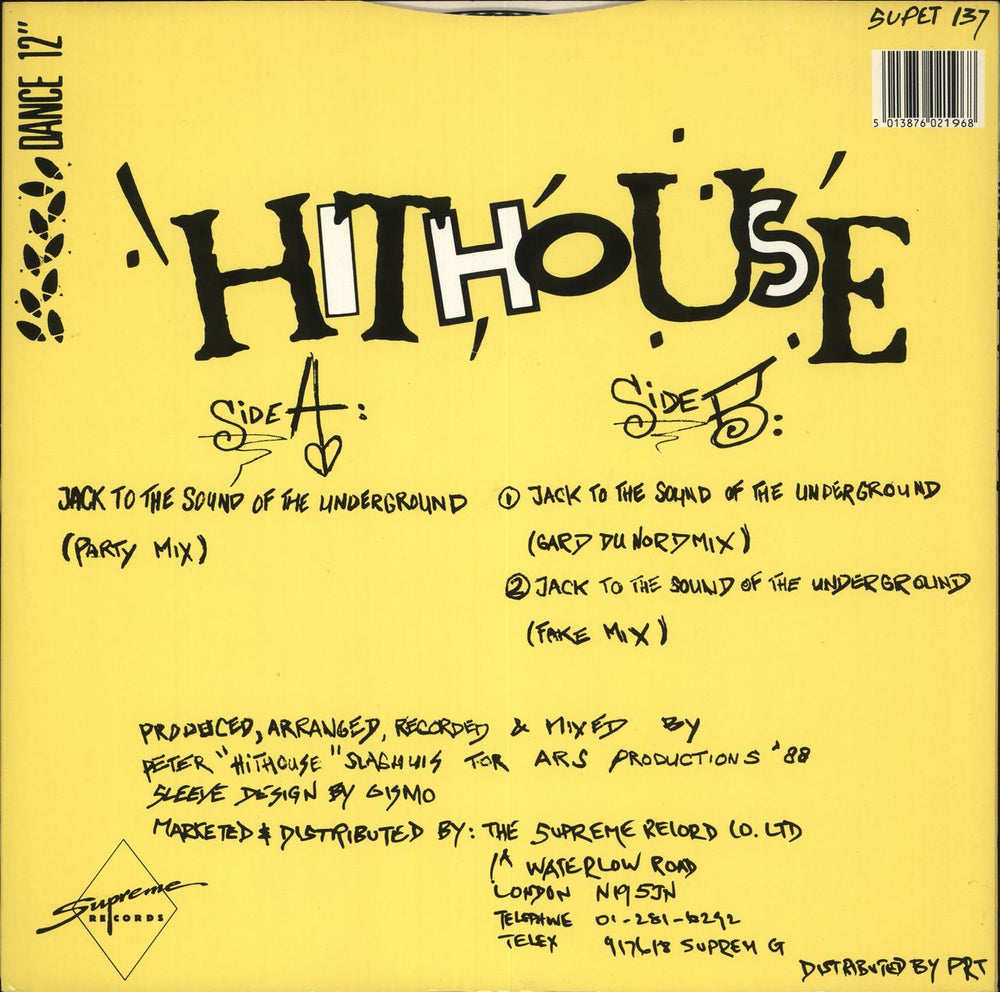 SUPET 137
DANCE 12"
5 013876 021968
HITHOUSE
SIDE A:
JACK TO THE SOUND OF THE UNDERGROUND
(PARTY MIX)
SIDE B:
① JACK TO THE SOUND OF THE UNDERGROUND
(GARD DU NORD MIX)
② JACK TO THE SOUND OF THE UNDERGROUND
(FAKE MIX)
PRODUCED, ARRANGED, RECORDED & MIXED BY
PETER "HITHOUSE" SLAGHUIS FOR ARS PRODUCTIONS '88
SLEEVE DESIGN BY GISMO
MARKETED & DISTRIBUTED BY: THE SUPREME RECORD CO. LTD
1A WATERLOW ROAD
LONDON N19 5JN
TELEPHONE 01-281-8292
TELEX 917618 SUPREM G
Supreme
RECORDS
DISTRIBUTED BY PRT